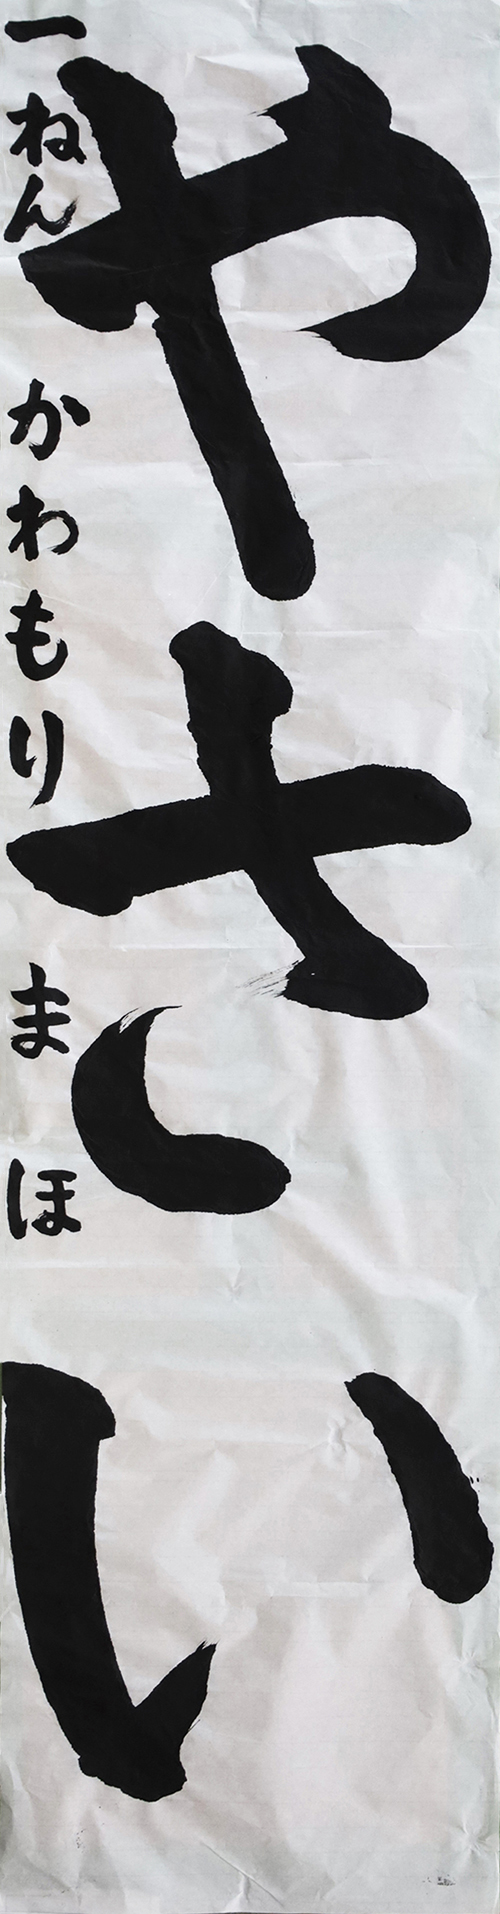 やさい
一ねん かわもり まほ